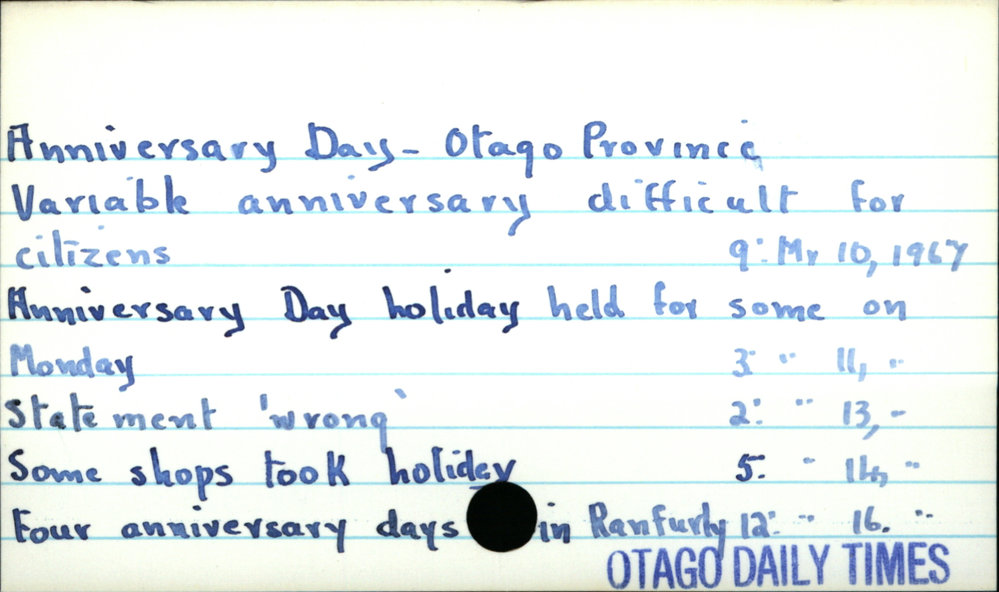 Anniversary Day - Otago Province
Variable anniversary difficult for
citizens 9: Mr 10, 1967
Anniversary Day holiday held for some on
Monday 3: " 11, "
Statement 'wrong' 2: " 13, "
Some shops took holiday 5: " 14, "
Four anniversary days in Ranfurly 12: " 16. "
OTAGO DAILY TIMES